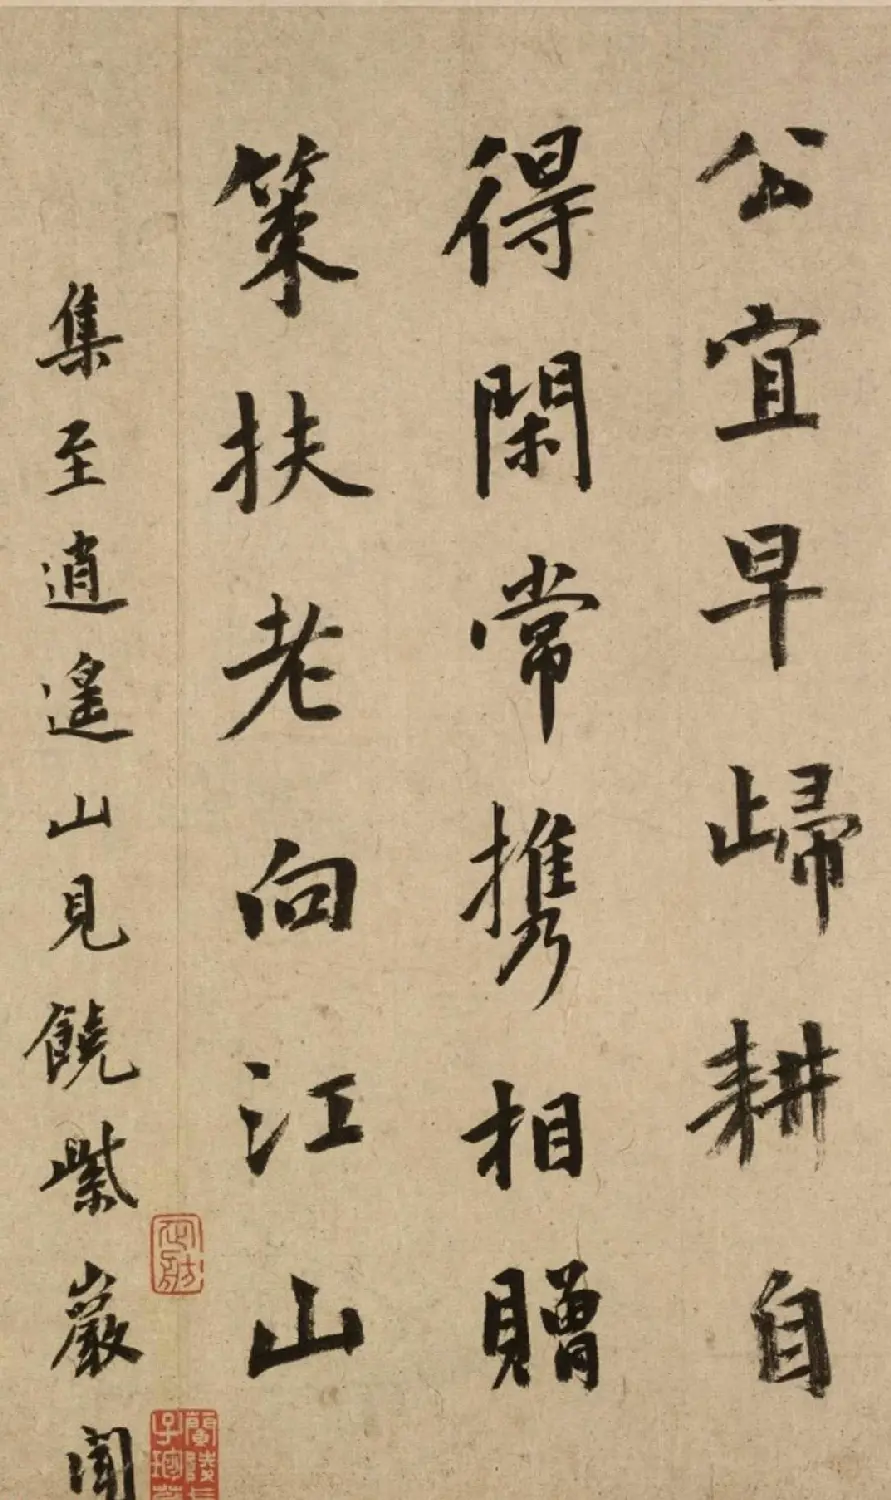 公宜早歸耕自
得閑常攜相贈
策扶老向江山
集至逍遙山見饒紫巖聞